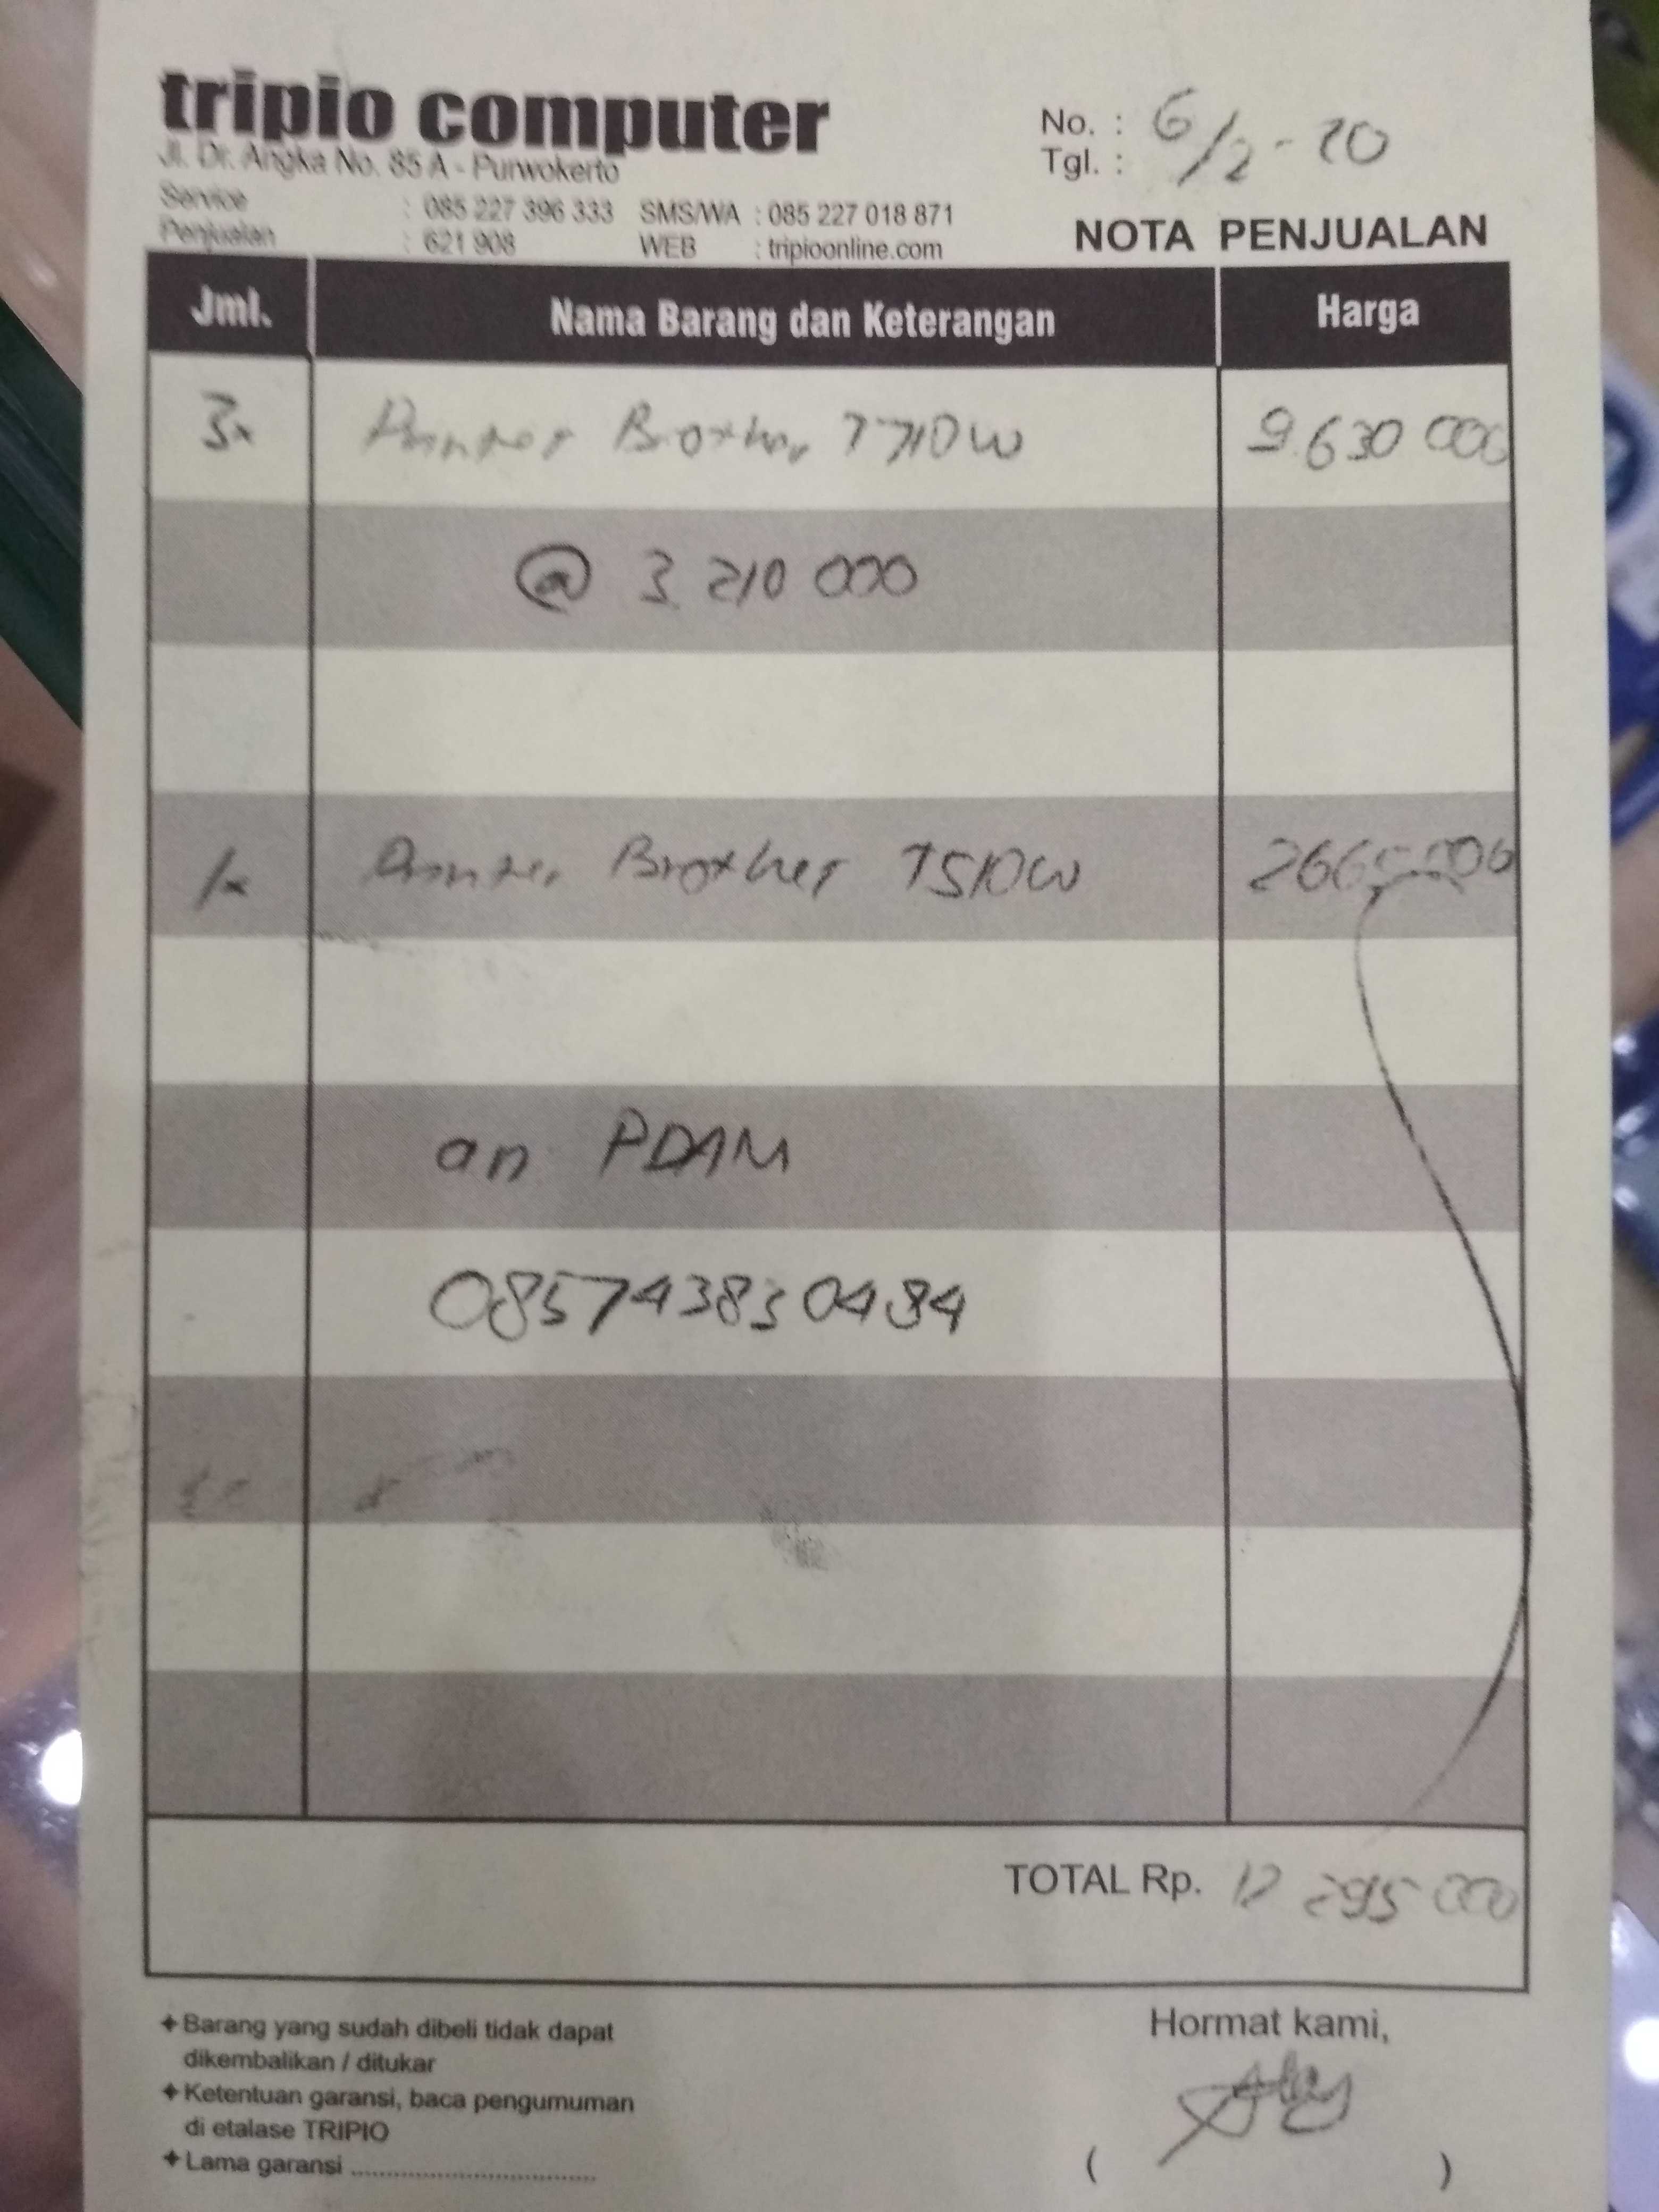 tripio computer
Jl. Dr. Angka No. 85 A - Purwokerto
Service : 085 227 396 333 SMS/WA : 085 227 018 871
Penjualan : 621 908 WEB : tripioonline.com
No. :
Tgl. : 6/2-20
NOTA PENJUALAN
Jml. Nama Barang dan Keterangan Harga
3x Printer Brother T710W 9.630 000
@ 3 210 000
1x Printer Brother T510W 2665 000
an PDAM
TOTAL Rp. 12 295 000
✦ Barang yang sudah dibeli tidak dapat
dikembalikan / ditukar
✦ Ketentuan garansi, baca pengumuman
di etalase TRIPIO
✦ Lama garansi ....................................
Hormat kami,
( )